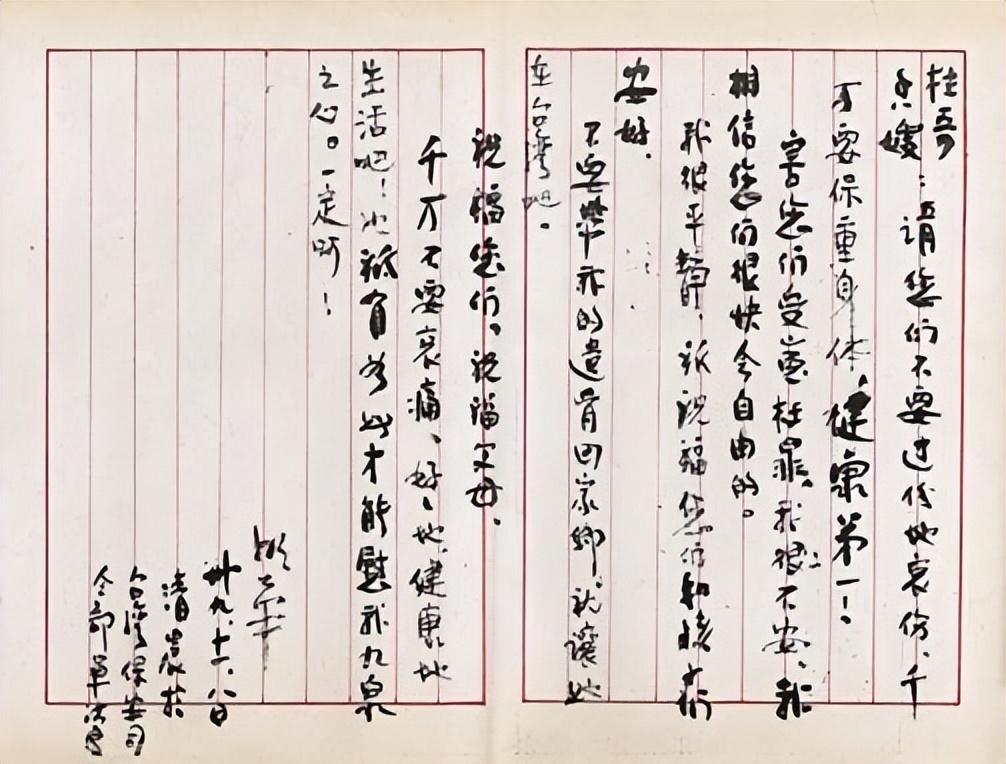 桂哥
香嫂：請您们不要过份地哀伤、千
万要保重身体、健康第一！
害您们受這枉罪、我很々不安、我
相信您们很快会自由的。
我很平靜、祝福您们和
安好.
不要带我的遺骨回家鄉、就讓她
在台灣吧。
祝福您们。祝福父母、
千万不要哀痛、好々地、健康地
生活吧！也祇有如此才能慰我九泉
之心。一定呀！
卅九、十一、八日
清晨於
台灣保安司
令部軍法處